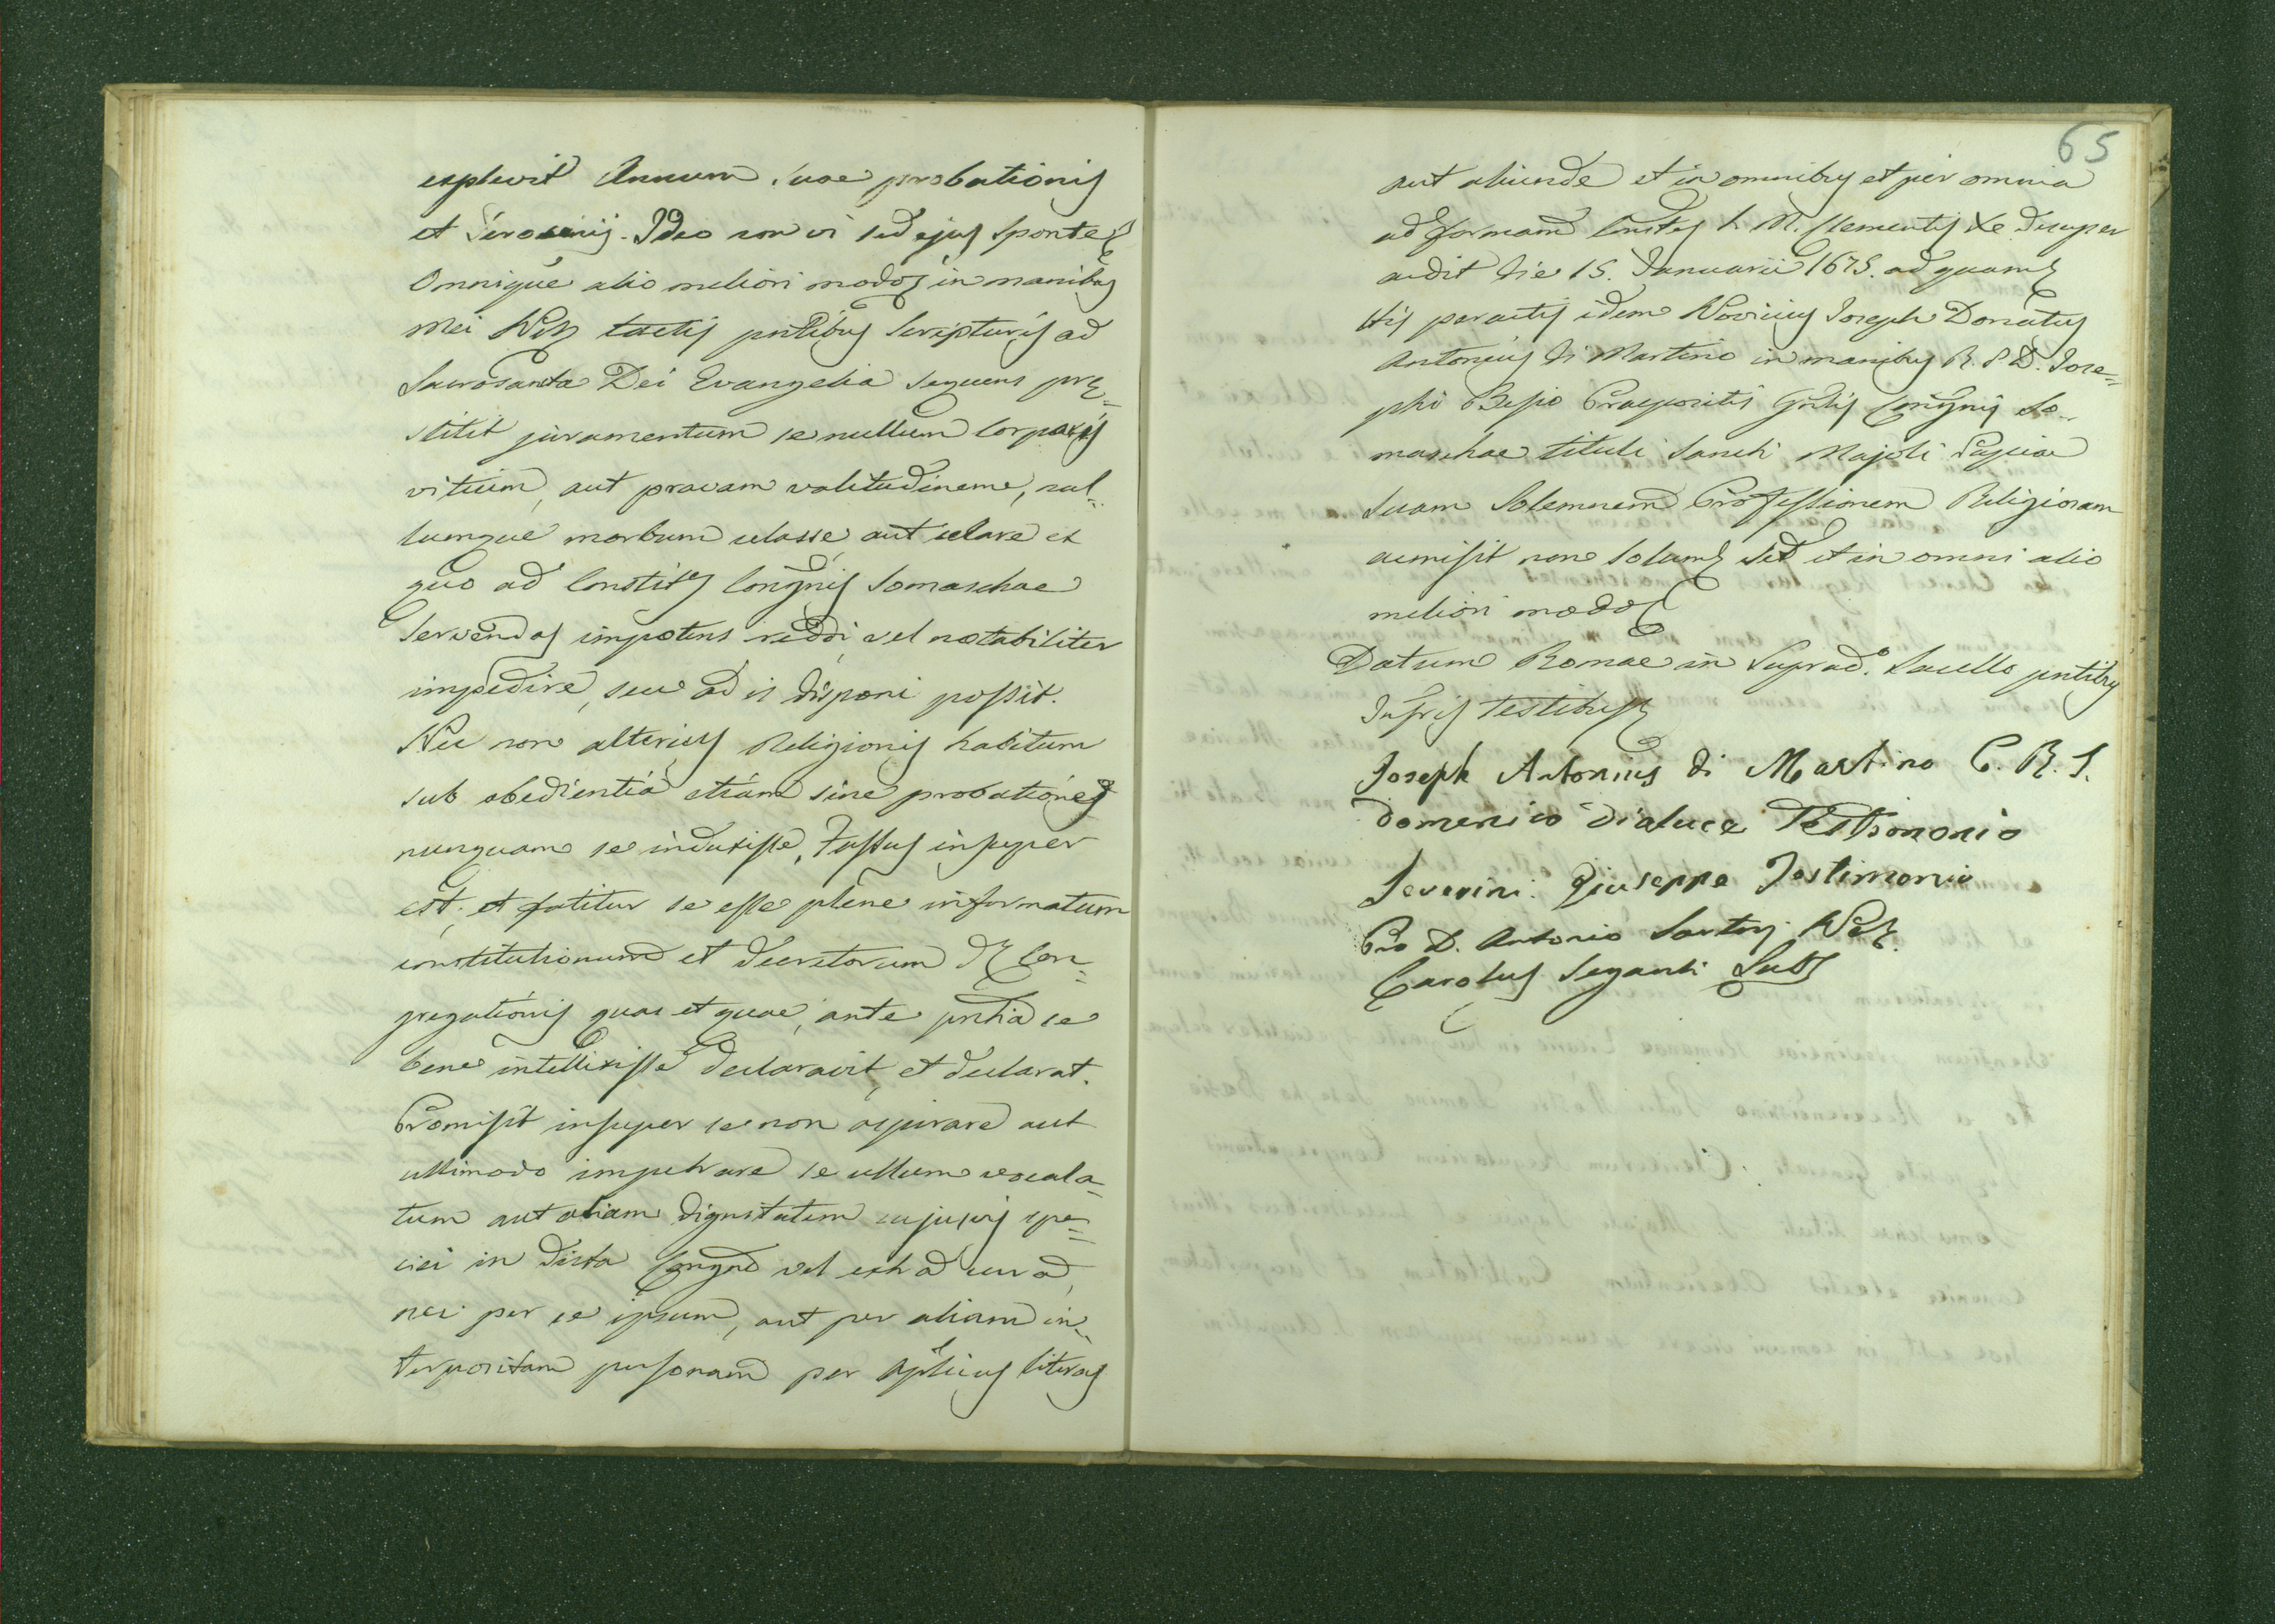 explevit Annum suae probationis
et Tirocinij. Ideo non vi sed ejus sponte
Omnique alio meliori modo in manibus
mei Not. tactis pntibus Scripturis ad
Sacrosancta Dei Evangelia sequens prę=
stitit juramentum se nullum Corporis
vitium, aut pravam valitudinem, nul=
lumque morbum celasse, aut celare ex
quo ad Constit.es Congñis Somaschae
Servandas impotens reddi, vel notabiliter
impedire, seu ad is disponi possit.
Nec non alterius Religionis habitum
sub obedientia etiam sine probatione
nunquam se induxisse, Fassus insuper
est, et fatitur se esse plene informatum
constitutionum et Decretorum Con=
gregationis quas et quae, ante pntia se
bene intellixisse declaravit, et declarat.
Promisit insuper se non aspirare aut
ullimodo impetrare se ullum vocala=
tum aut aliam dignitatem cujusvis spe=
ciei in dicta Congne vel extra eam,
nec per se ipsum, aut per aliam in=
terpositam personam per Aplicas literas
65
aut aliunde et in omnibus et per omnia
ad formam Const.es S. M. Clementis Xe desuper
aedit die 15. Januarii 1675. ad quam
His peractis idem Novicius Joseph Donatus
Antonius Di Martino in manibus R. P. D. Jose=
phi Besio Praepositi Gñlis Congñis So=
maschae tituli Sancti Majoli Papiae
suam Solemnem Professionem Religiosam
aemisit non solum sed et in omni alio
meliori modo
Datum Romae in Suprad.o Sacello pntibus
Infris testibus
Joseph Antonius di Martino C. R. S.
Domenico Dialuce Testimonio
Severini Giuseppe Testimonio
Pro D. Antonio Sartorj Not.
Carolus Seganti Subs